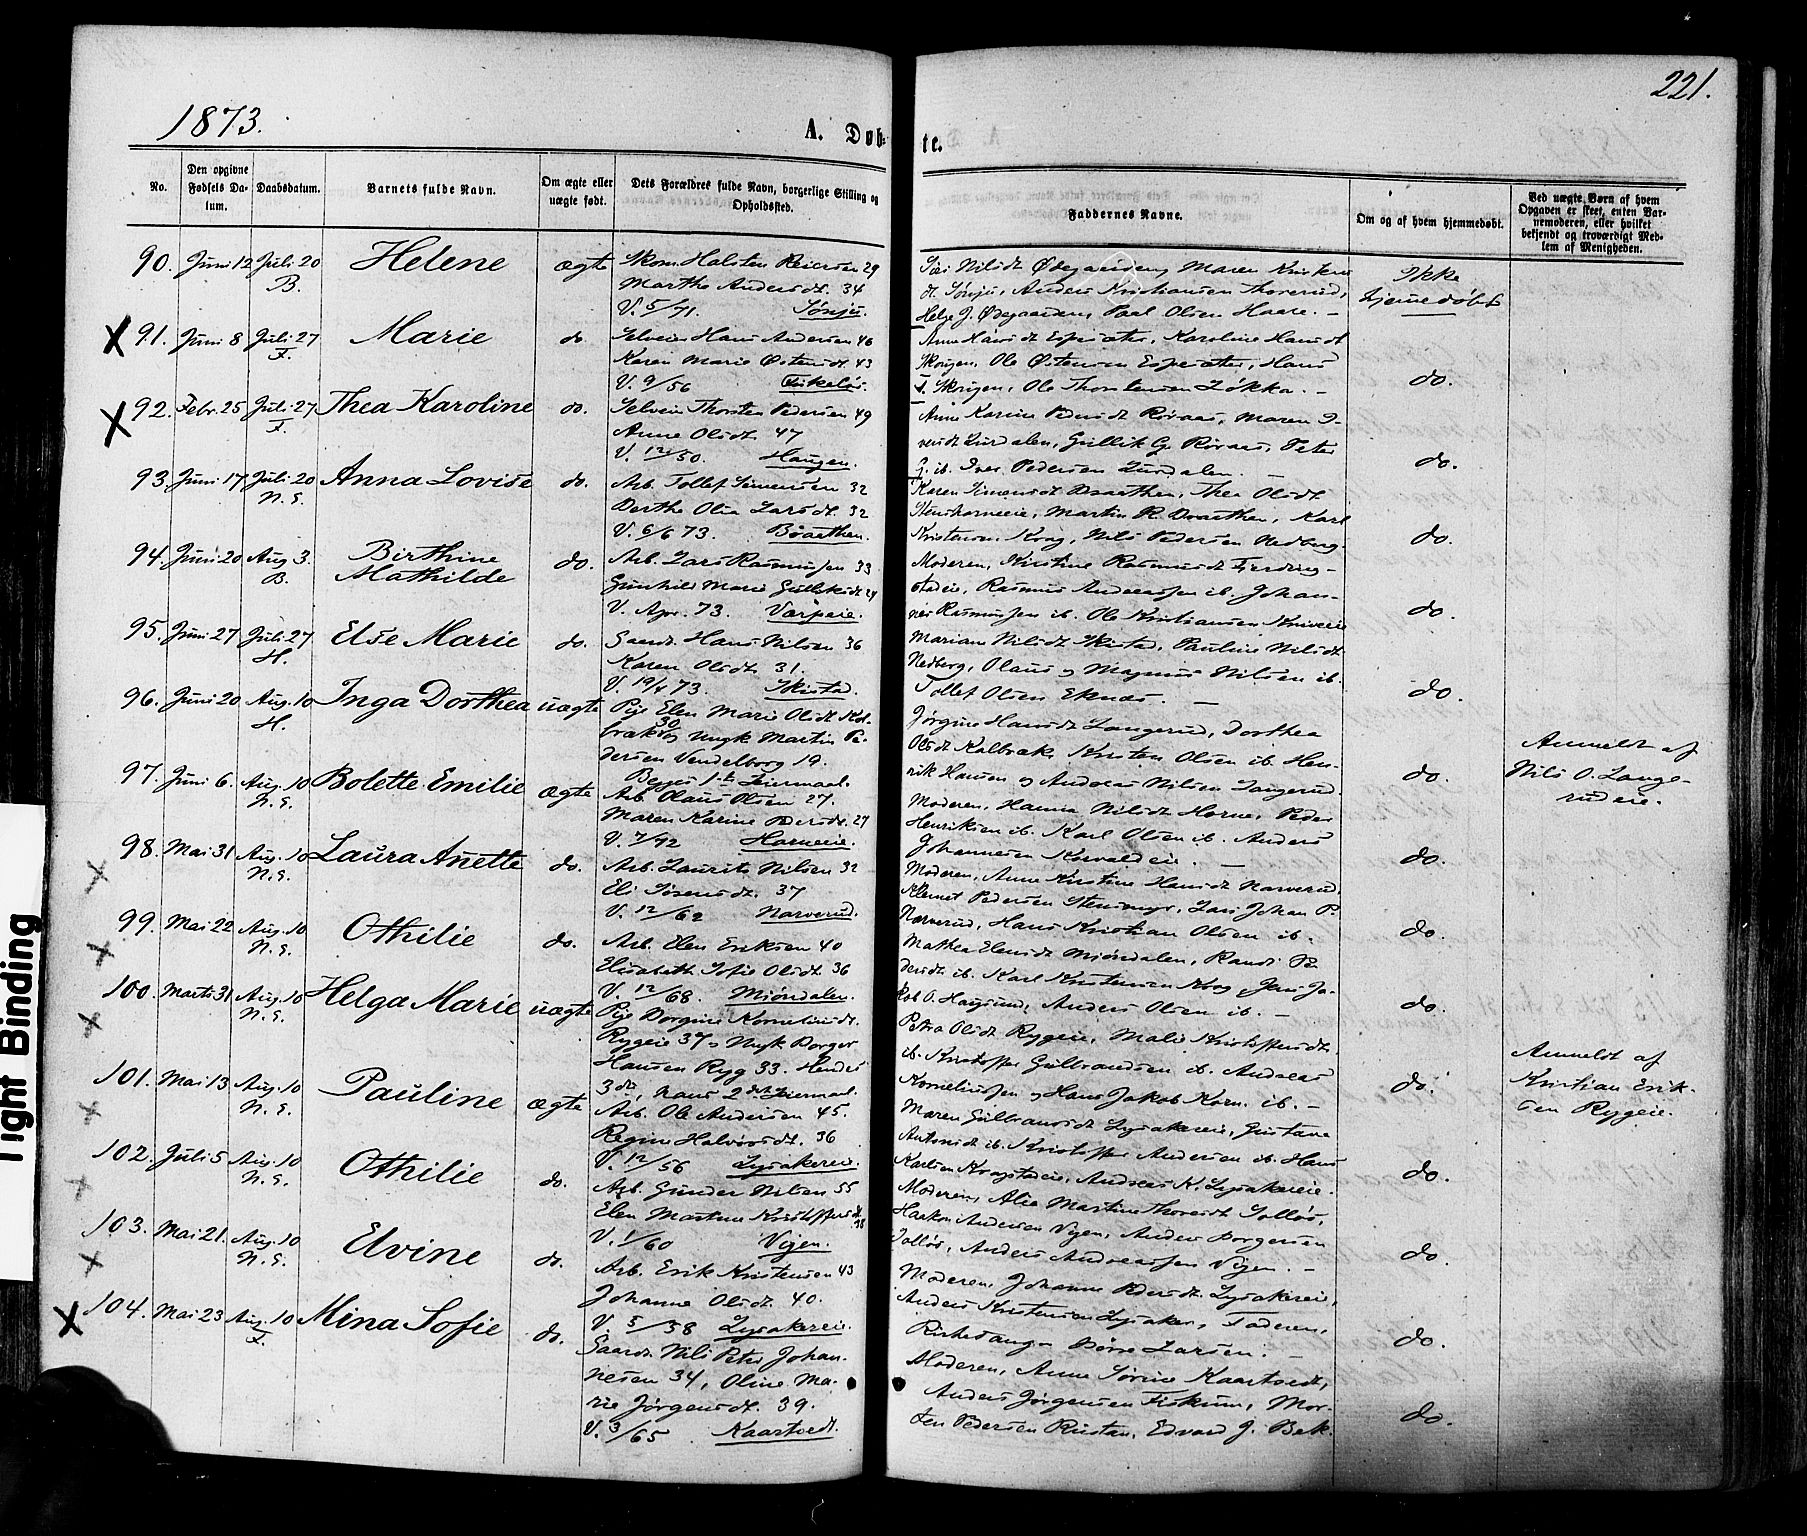 1873.
221.
A. Døb-
te.
No.
Den opgivne Fødsels Da-tum.
Daabsdatum.
Barnets fulde Navn.
Om ægte eller uægte født.
Dets Forældres fulde Navn, borgerlige Stilling og Opholdssted.
Faddernes Navne.
Om og af hvem hjemmedøbt.
Ved uægte Børn af hvem Opgaven er skeet, enten Bar-nemoderen, eller hvilket bekjendt og troværdigt Med-lem af Menigheden.
90. Juni 12 Juli 20 B. Helene ægte
Skom. Halsten Reiersen 29
Marthe Andersdt. 34
V. 5/71. Sønju.
Siri Nilsdt Ødegaarden, Maren Kristens
dt. Sønju, Anders Kristiansen Thorerud,
Helge J. Ødegaarden, Paal Olsen Haare. —
Ikke
hjemmedøbt
X 91. Juni 8 Juli 27 F. Marie do.
Selveier Hans Andersen 46
Karen Marie Østensdt 43
V. 9/56 Fiskeløs.
Anne Hansdt Espesæter, Karoline Hansdt
Skrigen, Ole Østensen Espesæter, Hans
Skrigen, Ole Thorstensen Løkka. —
do.
X 92. Febr. 25 Juli 27 F. Thea Karoline do.
Selveier Thorsten Pedersen 49
Anne Olsdt 47
V. 12/50. Haugen.
Anne Karine Pedersdt Røraas, Maren I-
versdt Lurdalen, Gullik G. Røraas, Peter
G. ib. Iver Pedersen Lurdalen. —
do.
93. Juni 17 Juli 20 N.E. Anna Lovise do.
Arb. Tollef Simensen 32
Berthe Olia Larsdt. 32
V. 6/6 73. Bøaethen.
Karen Simensdt Braathen, Thea Olsdt
Stenshorneie, Martin R. Braathen, Karl
Kristensen Krog, Nils Pedersen Nedberg.
do.
94. Juni 20 Aug. 3. B. Birthine
Mathilde do.
Arb. Lars Rasmussen 33
Gunhild Marie Gulliksdt 24
V. Apr. 73. Varpeie.
Moderen, Kristine Rasmusdt Fjerding-
stadeie, Rasmus Andreassen ib. Johan-
nes Rasmussen ib. Ole Kristiansen Kniveeie
do.
95. Juni 27 Juli 27 H. Else Marie do.
Gaardt. Hans Nilsen 36
Karen Olsdt 31.
V. 19/4 73. Skistad.
Mariane Nilsdt Skistad, Pauline Nilsdt
Nedberg, Olaus og Magnus Nilsen ib.
Tollef Olsen Eknæs. —
do.
96. Juni 20 Aug. 10 H. Inga Dorthea uægte
Pige Elen Marie Olsdt Kol-
bræk 30 og Ungk Martin Pe-
dersen Vendelborg 19.
Begges 1ste Leiermaal.
Jørgine Hansdt Langerud, Dorthea
Olsdt Kolbræk Kristen Olsen ib. Hen-
rik Hansen og Andreas Nilsen Langerud.
do.
Anmeldt af
Nils O. Lange-
rudeie.
97. Juni 6. Aug. 10 N.E. Bolette Emilie ægte
Arb. Olaus Olsen 27.
Maren Karine Pedersdt. 27
V. 7/72 Horneeie.
Moderen, Hanna Nilsdt Horne, Peder
Henriksen ib. Karl Olsen ib. Anders
Johannesen Korvaldeie. —
do.
X 98. Mai 31 Aug. 10 N.E. Laura Anette do.
Arb. Laurits Nilsen 32
Eli Sørensdt. 37
V. 12/62 Narverud.
Moderen, Anne Kristine Hansdt Narverud,
Klemet Pedersen Stenmyr, Lars Johan P.
Narverud, Hans Kristian Olsen ib.
do.
X 99. Mai 22 Aug. 10 N.E. Othilie do.
Arb. Elen Eriksen 40
Elisabeth Sofie Olsdt. 36
V. 12/68. Mjøndalen.
Mathea Elensdt Mjøndalen, Randi Pe
dersdt ib. Karl Kristensen Krog, Jens Ja-
kob O. Hagsund, Anders Olsen ib. —
do.
X 100. Marts 31 Aug. 10 N.E. Helga Marie uægte
Pige Dorgine Korneliusdt.
Rygeie 37 og Ungk Borger
Hansen Ryg 33. Hendes
3die, hans 2det Leiermaal.
Petra Olsdt Rygeie, Malie Kristoffersdt
ib. Kristoffer Gulbrandsen ib. Andreas
Korneliussen og Hans Jakob Korn. ib. —
do.
Anmeldt af
Kristian Erik-
sen Rygeie.
X 101. Mai 13 Aug. 10 N.E. Pauline ægte
Arb. Ole Andersen 45.
Regine Halvorsdt. 36
V. 12/56 Lysakereie.
Maren Gulbransdt Lysakereie, Gustava
Antonsdt ib. Kristoffer Andersen ib. Hans
Karlsen Krogstadeie, Andreas K. Lysakereie.
do.
X 102. Juli 5 Aug. 10 N.E. Othilie do.
Arb. Gunder Nilsen 55
Elen Martine Kristoffersdt 38
V. 1/60 Vejen.
Moderen, Alie Martine Thoresdt Solløs,
Haakon Andersen Vejen, Anders Borgersen
Solløs, Anders Andreassen Vejen. —
do.
X 103. Mai 21. Aug. 10 N.E. Elvine do.
Arb. Erik Kristensen 43
Johanne Olsdt. 40.
V. 5/58 Lysakereie.
Moderen, Johanne Pedersdt. Lysakereie,
Anders Kristensen Lysaker, Faderen,
Børre Larsen. —
do.
X 104. Mai 23 Aug. 10 F. Mina Sofie do.
Gaardt. Nils Peter Johan-
nesen 34, Oline Ma-
rie Jørgensdt. 39.
V. 3/65 Kaartvedt.
Moderen, Anne Sørine Kaartvedt,
Anders Jørgensen Fiskum, Mor-
ten Pedersen Rustan, Edvard J. Bek.
do.
Tight Binding